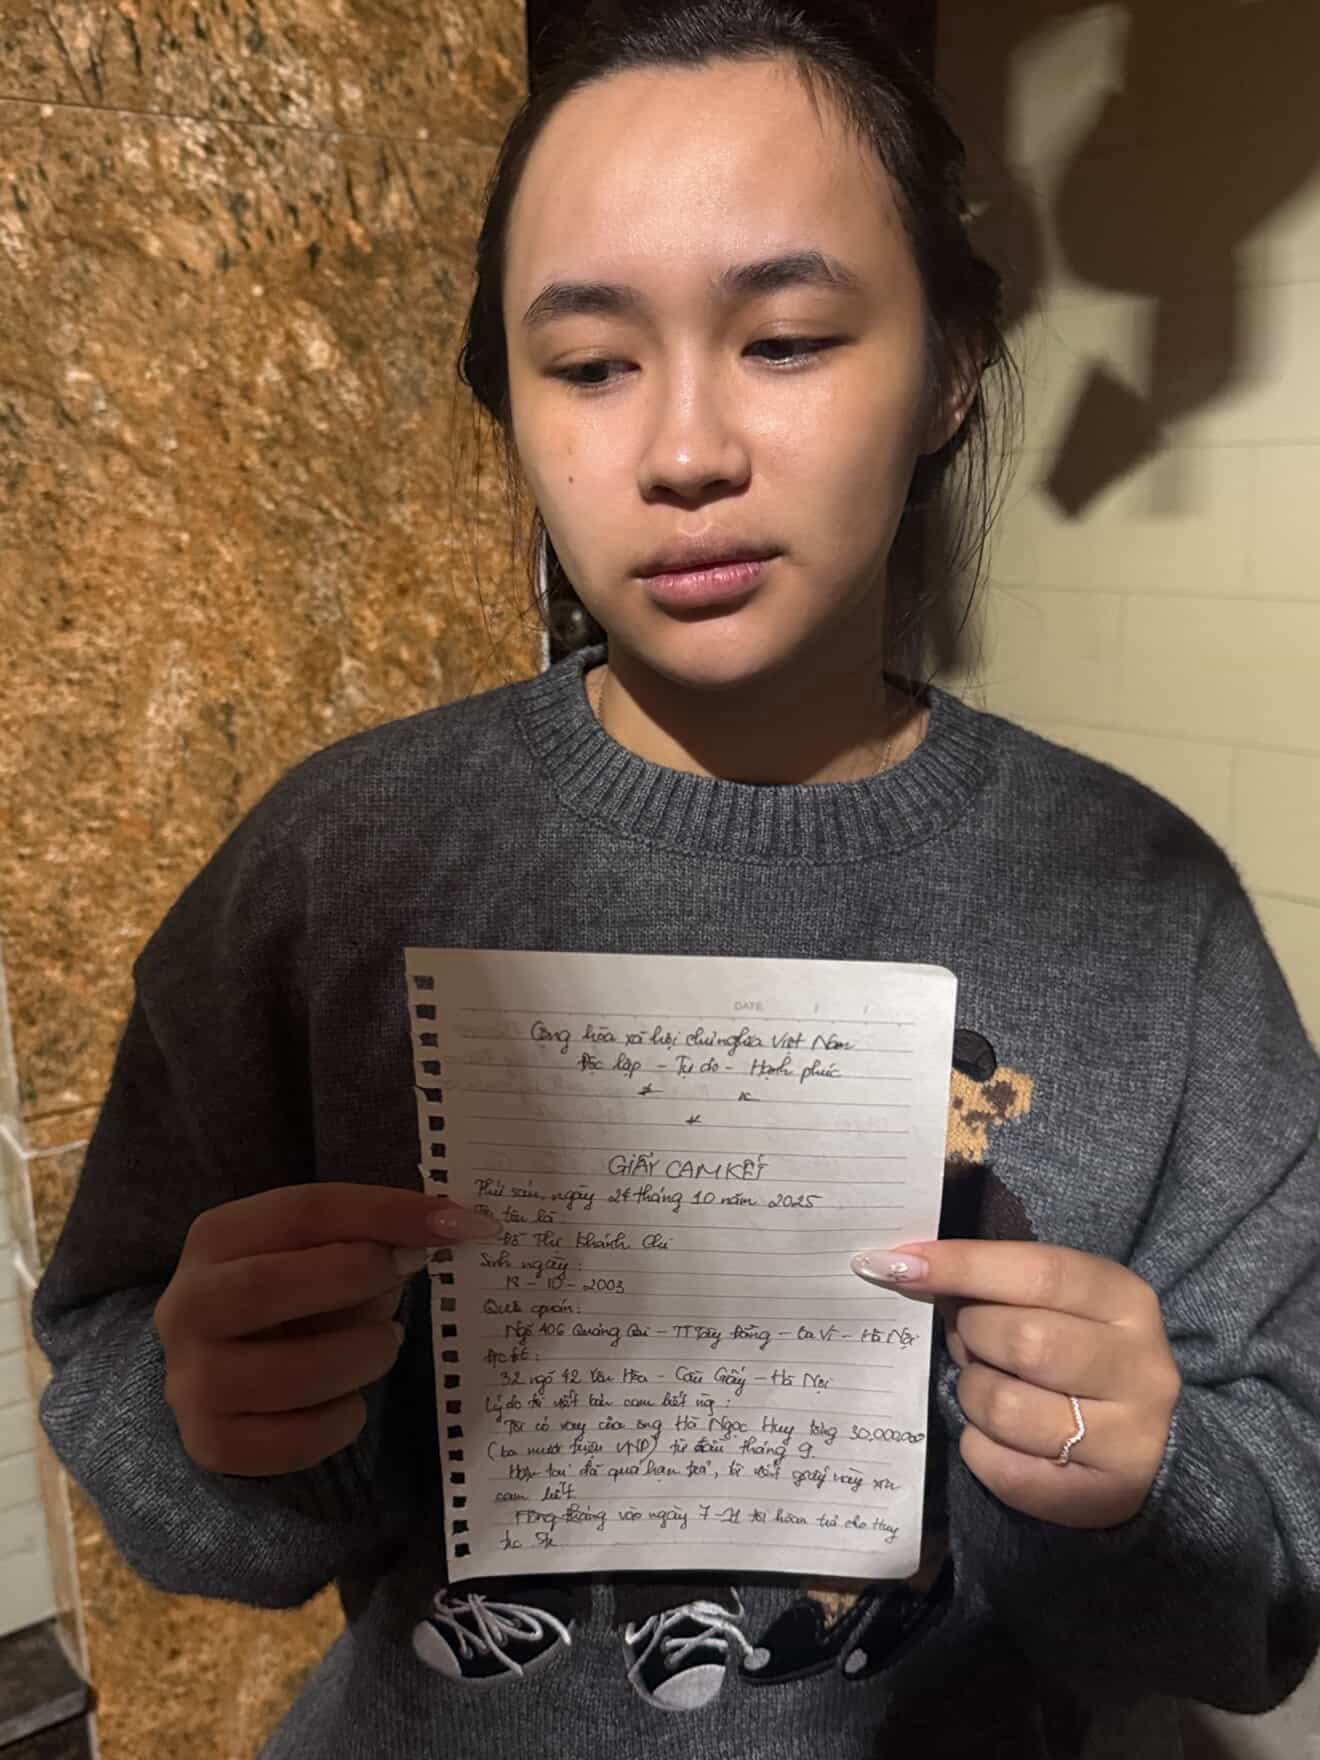 DATE / /
Cộng hòa xã hội chủ nghĩa Việt Nam
Độc lập - Tự do - Hạnh phúc
GIẤY CAM KẾT
ngày 24 tháng 10 năm 2025
tên là
Đỗ Thị Khánh Chi
Sinh ngày:
- 10 - 2003
Quê quán:
Ngõ 406 Quảng Oai - TT Tây Đằng - Ba Vì - Hà Nội
32 ngõ 42 Yên Hòa - Cầu Giấy - Hà Nội
Lý do tôi viết bản cam kết này:
Tôi có vay của ông Hà Ngọc Huy tổng 30,000,000
(ba mươi triệu VNĐ) từ đầu tháng 9.
Hiện tại đã quá hạn trả, tôi viết giấy này xin
cam kết
Hàng tháng vào ngày 7-11 tôi hoàn trả cho Huy
5tr